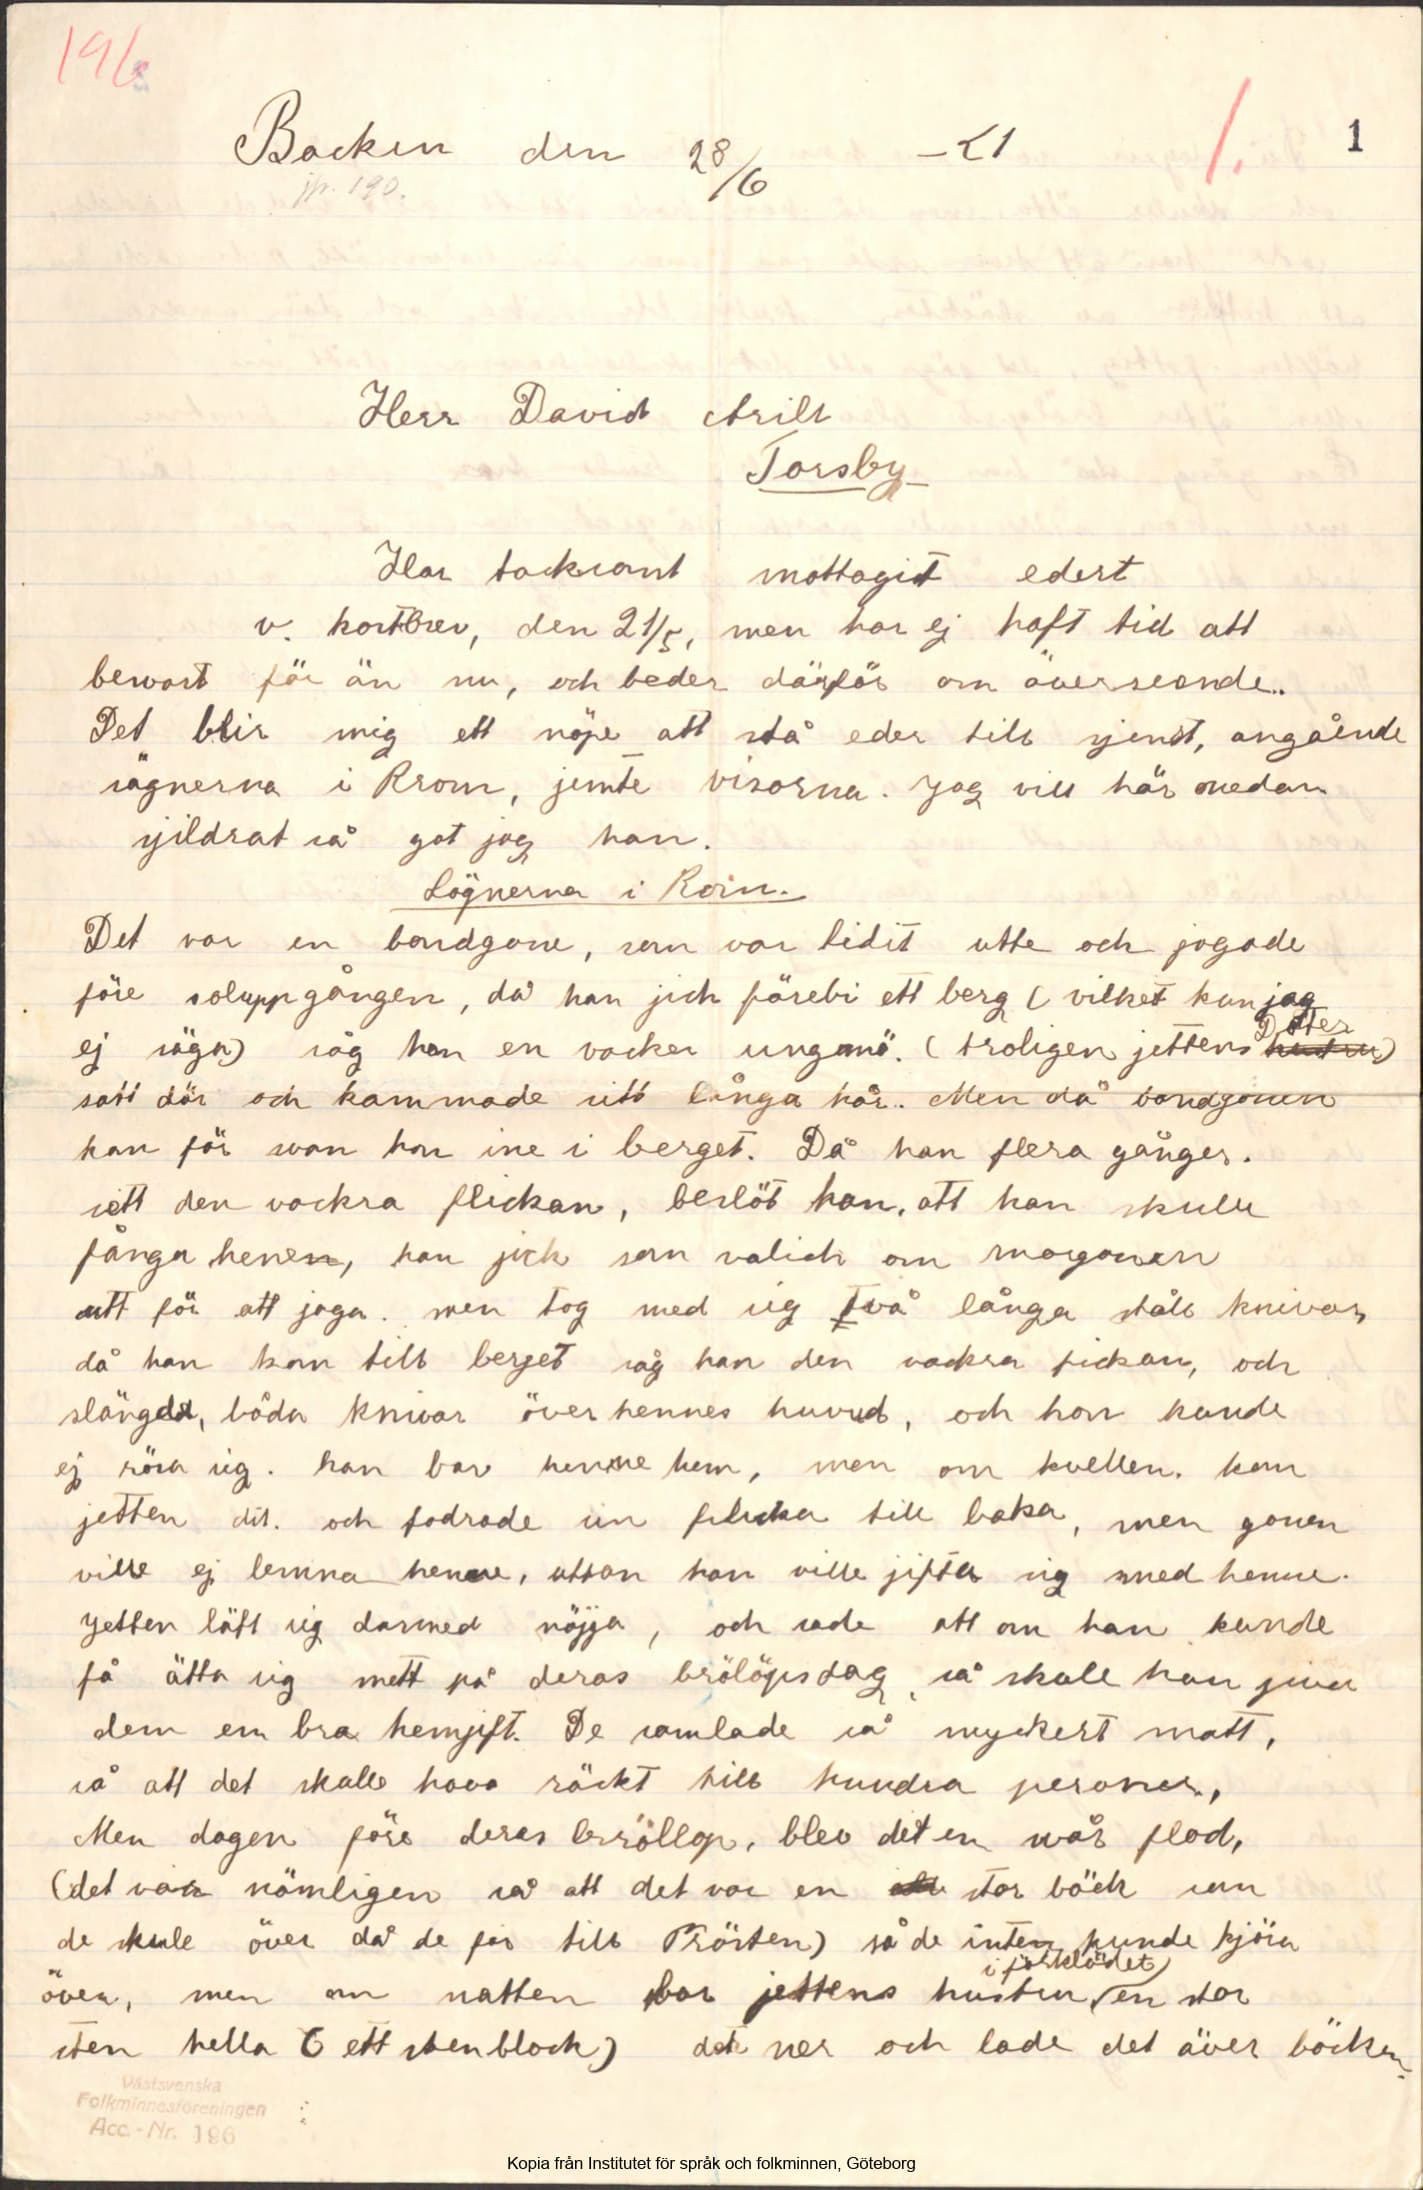 196
Backen den 28/6 -21 1. 1
jfr. 190.
Herr David Arill
Torsby
Har tacksamt mottagit edert
v. kortbrev, den 21/5, men har ej haft tid att
bewart för än nu, och beder därför om överseende..
Det blir mig ett nöje att stå eder till tjenst, angående
sägnerna i Krom, jemte visorna. Jag vill här nedan
sjildrat så got jag kan.
Sögnerna i Roin.
Det var en bondgone, som var tidit utte och jagade
före soluppgången, då han jick förebi ett berg (vilket kan jag
ej säga) såg han en vacker ungmö. (troligen jettens Dotter)
satt där och kammade sitt långa hår.. Men då bondgonen
kom för svan hon ine i berget. Då han flera gånger.
sett den vackra flickan, beslöt han, att han skulle
fånga henen, han jick som valich om morgonen
utt för att jaga. men tog med sig två långa ståll knivar,
då han kom till berjet såg han den vackra fickan, och
slängde, båda knivar över hennes huvud, och hon kunde
ej röra sig. han bar henne hem, men om kvellen. kom
jetten dit. och fodrade sin flicka till baka, men gonen
ville ej lemna henne, uttan han ville jifta sig med henne.
Jetten läft sig darmed nöjja, och sade att om han kunde
få ätta sig mett på deras brölöpsdag så skulle han jiva
dem en bra hemjift. De samlade så myckert matt,
så att det skulle hava räckt till hundra personer.,
Men dagen före deras bröllop, blev det en svår flod,
(det var nömligen så att det var en stor bäck som
de skule över då de for till Prösten) så de inten kunde kjöra
över, men om natten bar jettens hustru i förklädet en stor
sten hella ( ett stenblock) det ner och lade det över bäcken.
Västsvenska
Folkminnesföreningen
Acc.-Nr. 196
Kopia från Institutet för språk och folkminnen, Göteborg